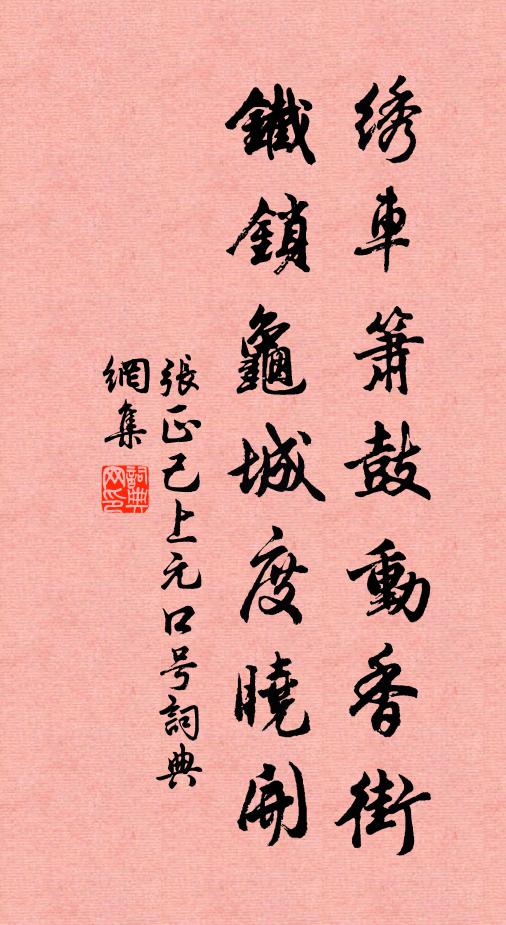 绣車簫鼓動香街
鐵鎖龜城度曉開
張正己上元口号詞典
網集
詞典
网印